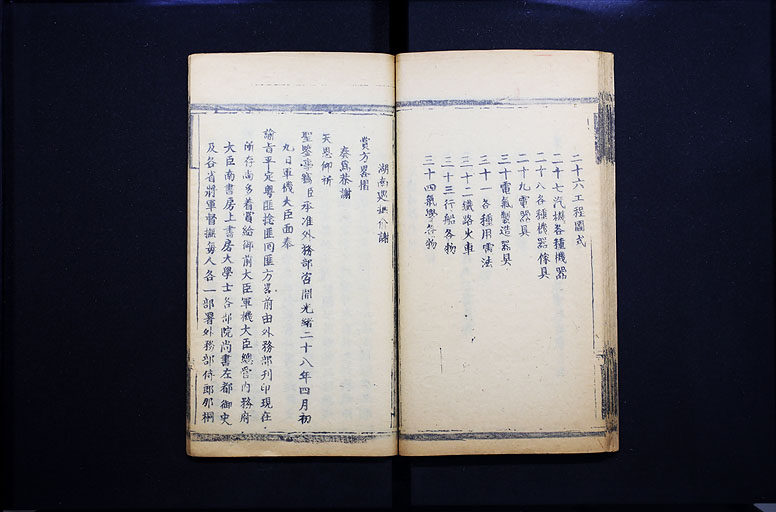 二十六工程圖式
二十七汽機各種機器
二十八各種機器傢具
二十九電器具
三十電氣製造器具
三十一各種用電法
三十二鐵路火車
三十三行船各物
三十四氣學各物
湖南巡撫 謝
賞方畧摺
奏爲恭謝
天恩仰祈
聖鑒事竊臣承准外務部咨開光緒二十八年四月初
九日軍機大臣面奉
諭旨平定粤匪捻匪回匪方畧前由外務部刊印現在
所存尚多着賞給御前大臣軍機大臣總管內務府
大臣南書房上書房大學士各部院尚書左都御史
及各省將軍督撫每人各一部署外務部侍郎那桐